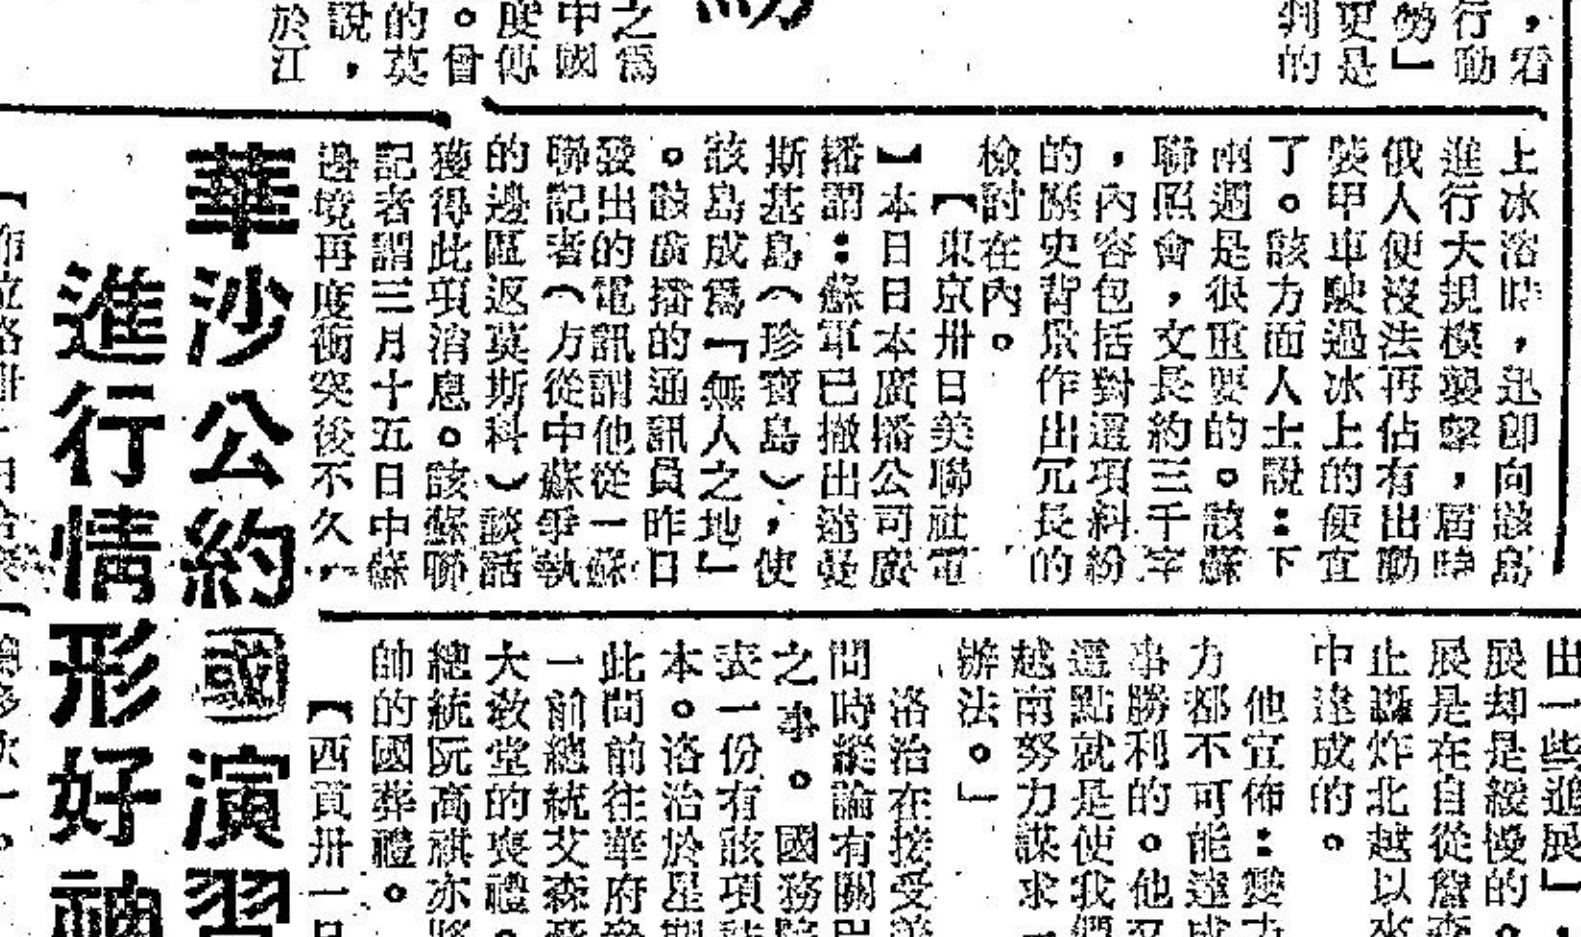 ，看
行動
勢」
更是
判的
之為
中國
度傳
。曾
的莫
說，
於江
上冰溶時，迅即向該島
進行大規模襲擊，屆時
俄人便沒法再佔有出動
裝甲車駛過冰上的便宜
了。該方面人士說：下
兩週是很重要的。該蘇
聯照會，文長約三千字
，內容包括對這項糾紛
的歷史背景作出冗長的
檢討在內。
【東京卅日美聯社電
】本日日本廣播公司廣
播謂：蘇軍已撤出達曼
斯基島（珍寶島），使
該島成為「無人之地」
。該廣播的通訊員昨日
發出的電訊謂他從一蘇
聯記者（方從中蘇爭執
的邊區返莫斯科）談話
獲得此項消息。該蘇聯
記者謂三月十五日中蘇
邊境再度衝突後不久，
華沙公約國演習
進行情形好神
出一些進展」，
展却是緩慢的。
展是在自從詹森
止轟炸北越以來
中達成的。
他宣佈：雙方
力都不可能達成
事勝利的。他又
這點就是使我們
越南努力謀求一
辦法。」
洛治在接受美
問時縱論有關巴
之事。國務院
表一份有該項
本。洛治於星期
此間前往華府參
一前總統艾森豪
大敎堂的喪禮。
總統阮高祺亦將
帥的國葬禮。
【西貢卅一日